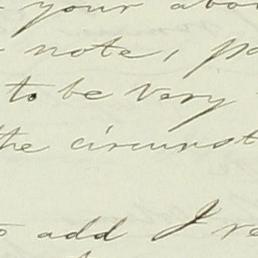 your abo
note, pa
to be very
the circumst
add I re